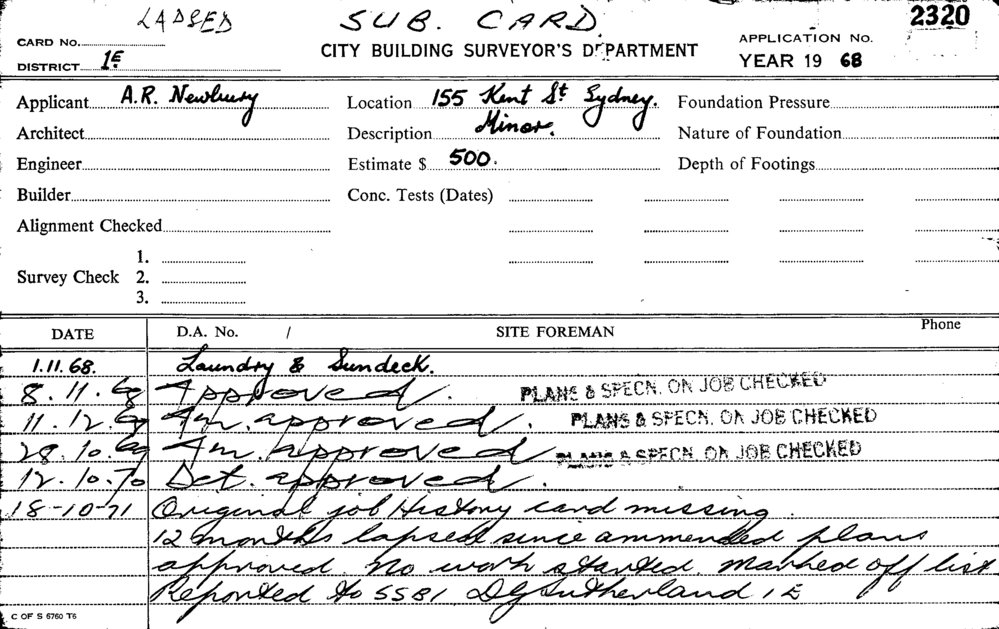 LAPSED
SUB. CARD.
2320
CARD No.
CITY BUILDING SURVEYOR'S DEPARTMENT
APPLICATION No.
DISTRICT 1E
YEAR 19 68
Applicant A.R. Newbury
Location 155 Kent St Sydney.
Foundation Pressure
Architect
Description Minor.
Nature of Foundation
Engineer
Estimate $ 500.
Depth of Footings
Builder
Conc. Tests (Dates)
Alignment Checked
Survey Check 1.
2.
3.
DATE D.A. No. / SITE FOREMAN Phone
1.11.68. Laundry & Sundeck.
8.11.68 Approved. PLANS & SPECN. ON JOB CHECKED
11.12.69 Am. approved. PLANS & SPECN. ON JOB CHECKED
28.10.69 Am. approved PLANS & SPECN. ON JOB CHECKED
12.10.70 Det. approved.
18-10-71 Original job History card missing.
12 months lapsed since ammended plans
approved. No work started. Marked off list
Reported to SSBI DG Sutherland 1E
C OF S 6760 T6